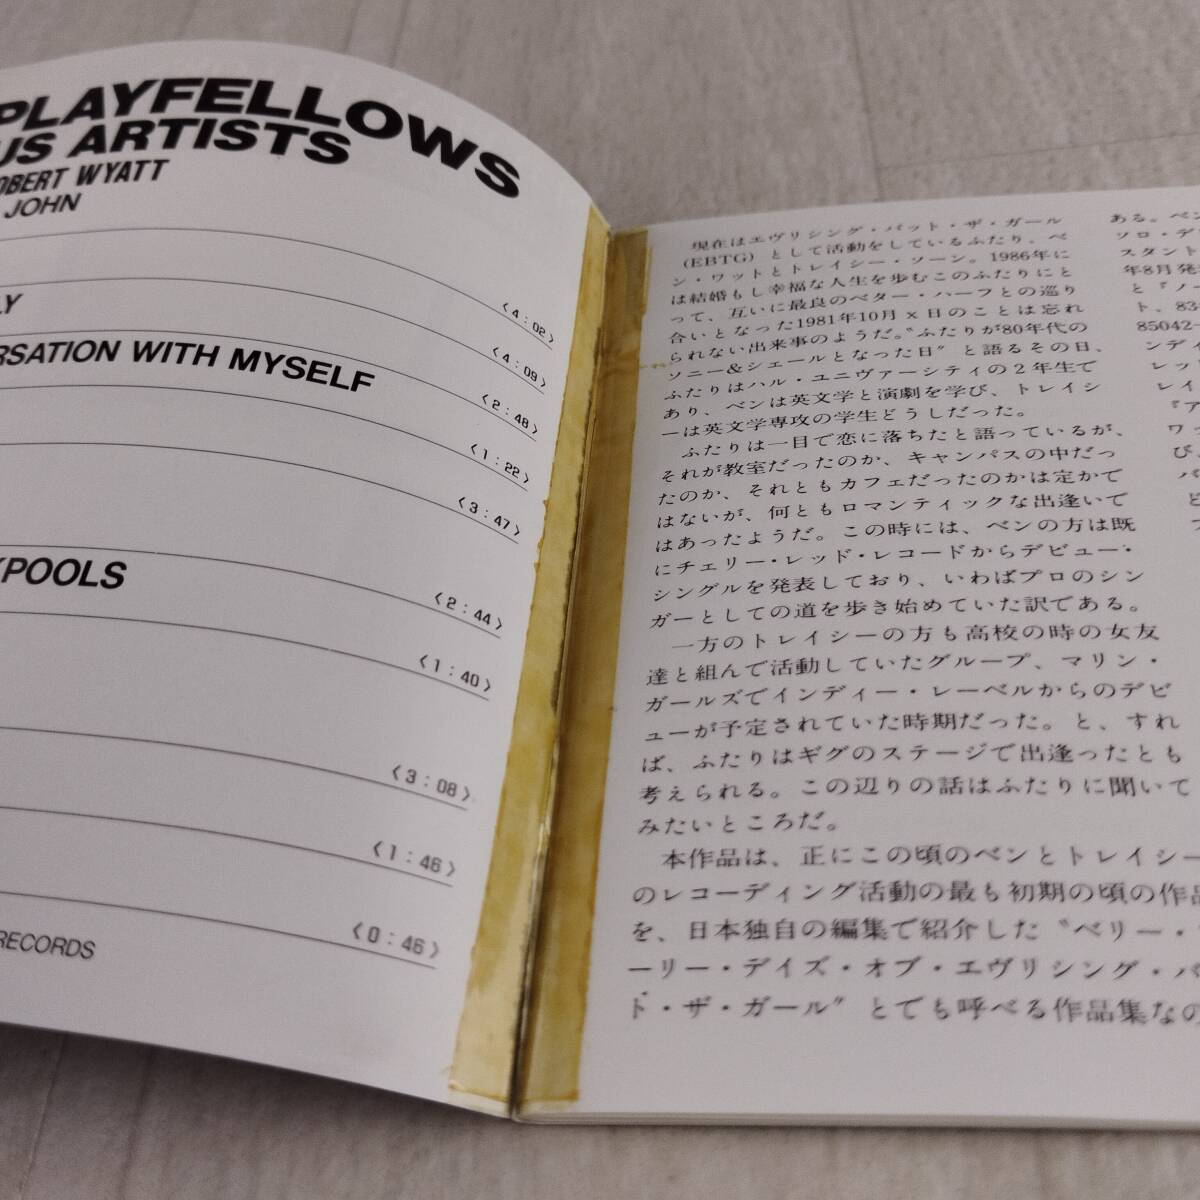 PLAYFELLOWS
US ARTISTS
OBERT WYATT
JOHN
<4:02>
LY
<4:09>
RSATION WITH MYSELF
<2:48>
<1:22>
<3:47>
POOLS
<2:44>
<1:40>
<3:08>
<1:46>
<0:46>
RECORDS
現在はエヴリシング・バット・ザ・ガール
(EBTG) として活動をしているふたり、ベ
ン・ワットとトレイシー・ソーン。1986年に
は結婚もし幸福な人生を歩むこのふたりにと
って、互いに最良のベター・ハーフとの巡り
合いとなった1981年10月×日のことは忘れ
られない出来事のようだ。〝ふたりが80年代の
ソニー&シェールとなった日〟と語るその日、
ふたりはハル・ユニヴァーシティの2年生で
あり、ベンは英文学と演劇を学び、トレイシ
ーは英文学専攻の学生どうしだった。
ふたりは一目で恋に落ちたと語っているが、
それが教室だったのか、キャンパスの中だっ
たのか、それともカフェだったのかは定かで
はないが、何ともロマンティックな出逢いで
はあったようだ。この時には、ベンの方は既
にチェリー・レッド・レコードからデビュー・
シングルを発表しており、いわばプロのシン
ガーとしての道を歩き始めていた訳である。
一方のトレイシーの方も高校の時の女友
達と組んで活動していたグループ、マリン・
ガールズでインディー・レーベルからのデビ
ューが予定されていた時期だった。と、すれ
ば、ふたりはギグのステージで出逢ったとも
考えられる。この辺りの話はふたりに聞いて
みたいところだ。
本作品は、正にこの頃のベンとトレイシー
のレコーディング活動の最も初期の頃の作品
を、日本独自の編集で紹介した〝ベリー・
ーリー・デイズ・オブ・エヴリシング・バ
ト・ザ・ガール〟とでも呼べる作品集なの
ある。ベン
ソロ・デ
スタント
年8月発
と『ノー
ト、83
85042-
ンディ
レッド
レイ
『ア
ワッ
び、
パ
ど